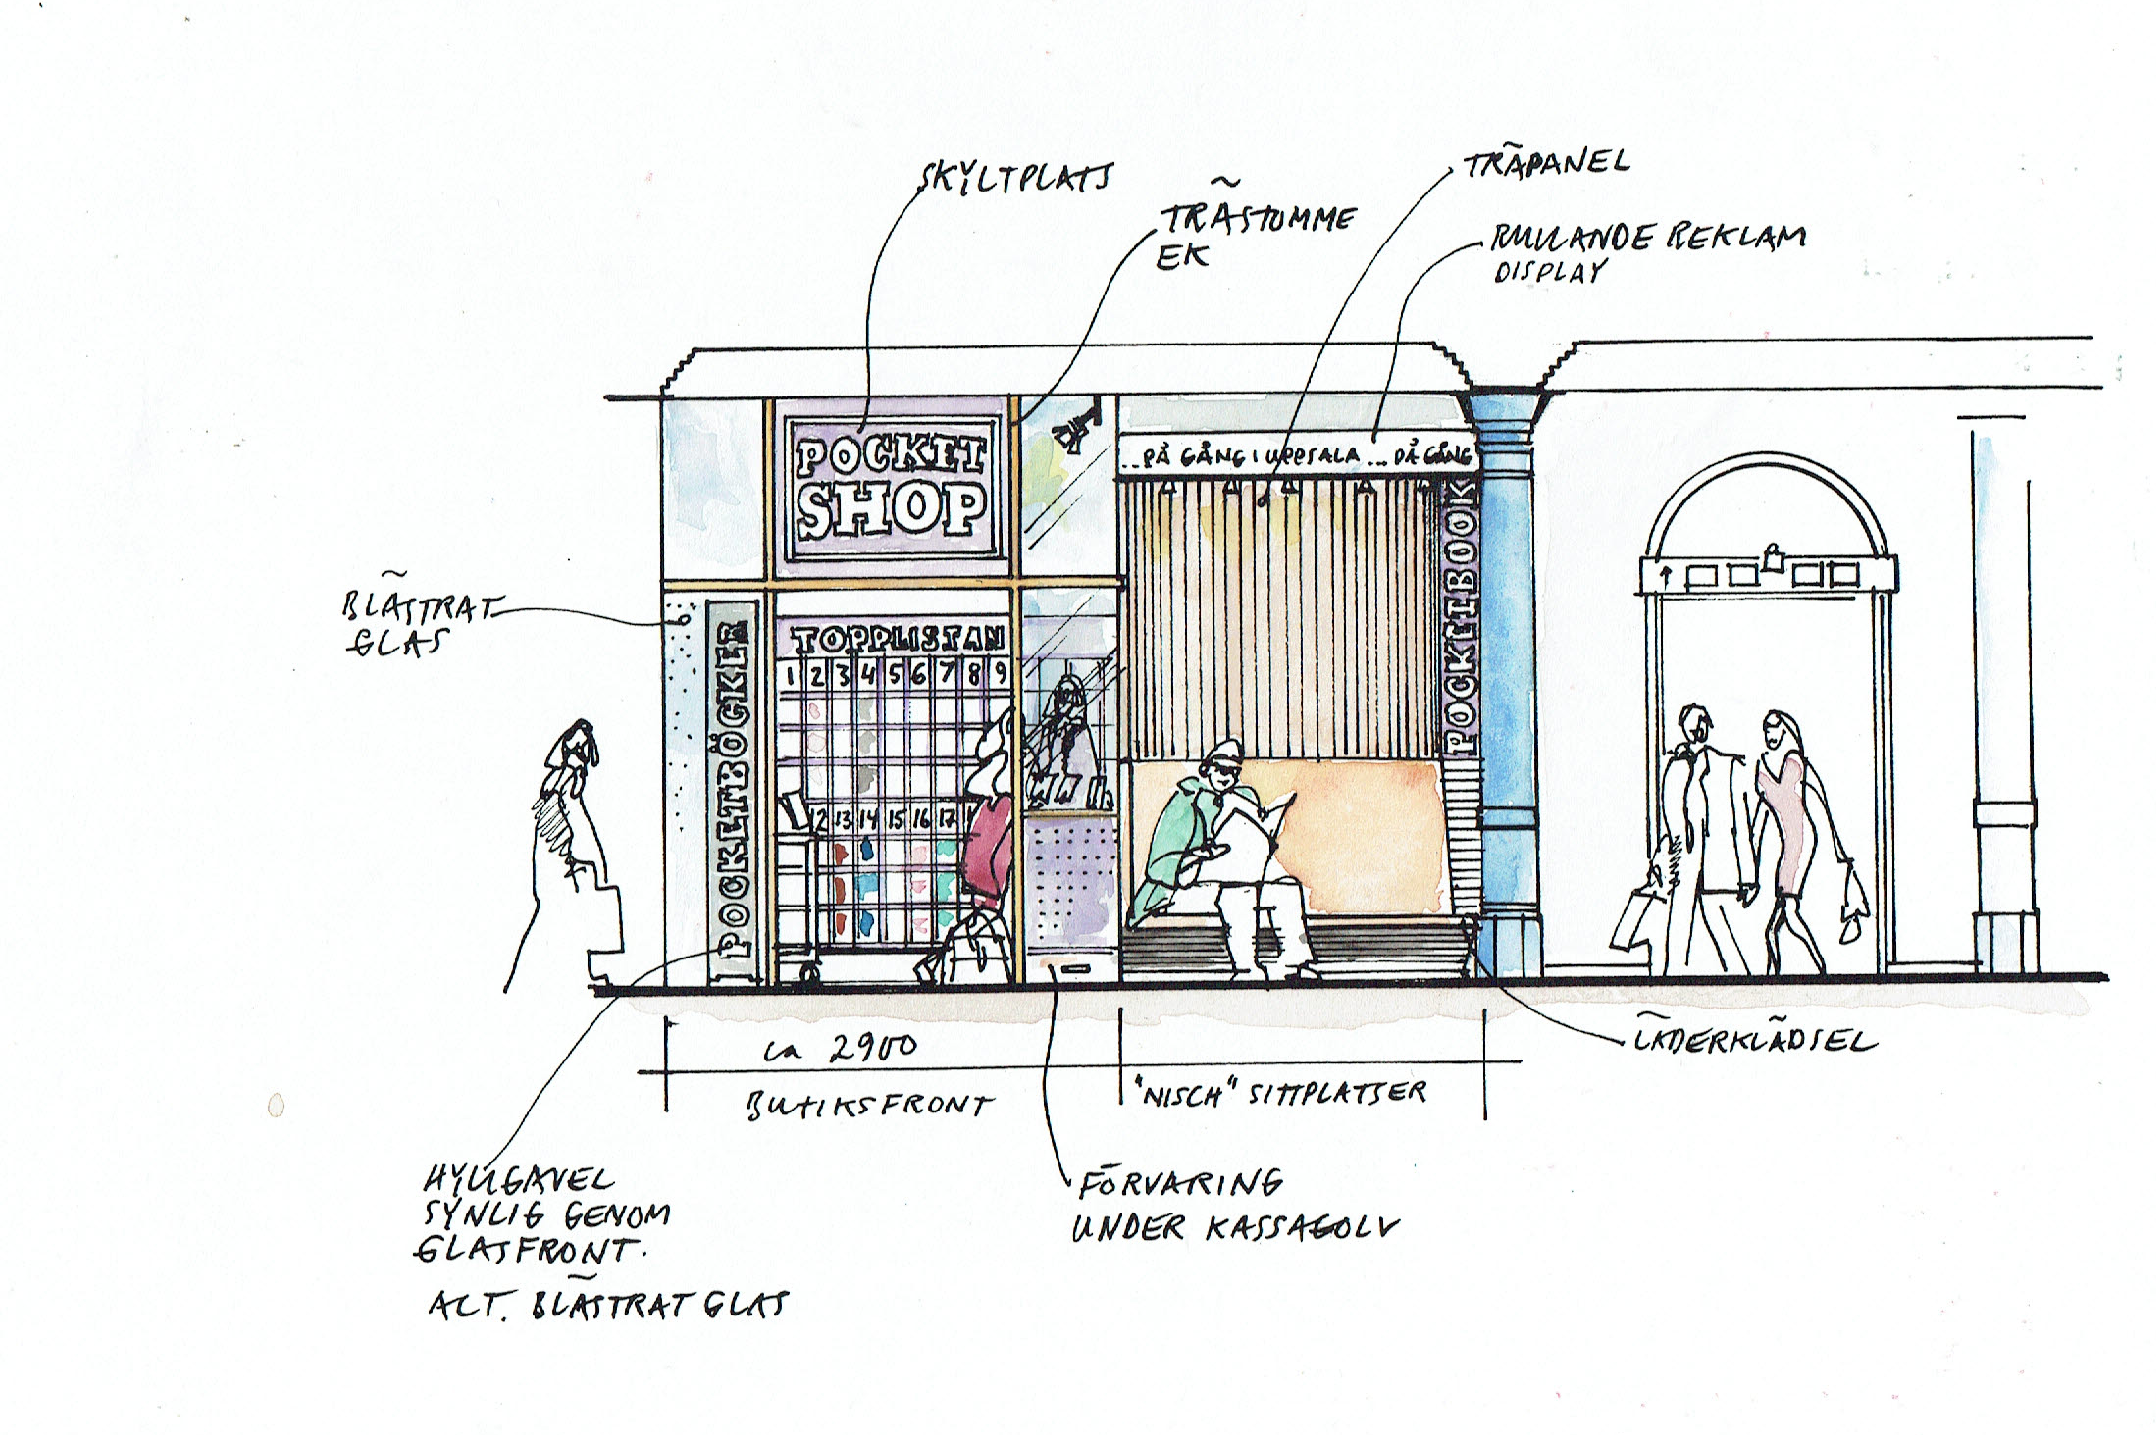 SKYLTPLATS
TRÄSTOMME
EK
TRÄPANEL
RULLANDE REKLAM
DISPLAY
POCKET
SHOP
..PÅ GÅNG I UPPSALA ... PÅ GÅNG
BLÄSTRAT
GLAS
POCKETBÖCKER
TOPPLISTAN
1 2 3 4 5 6 7 8 9
12 13 14 15 16 17
POCKETBOOK
ca 2900
BUTIKSFRONT
"NISCH" SITTPLATSER
LÄDERKLÄDSEL
HYLLGAVEL
SYNLIG GENOM
GLASFRONT.
ALT. BLÄSTRAT GLAS
FÖRVARING
UNDER KASSAGOLV